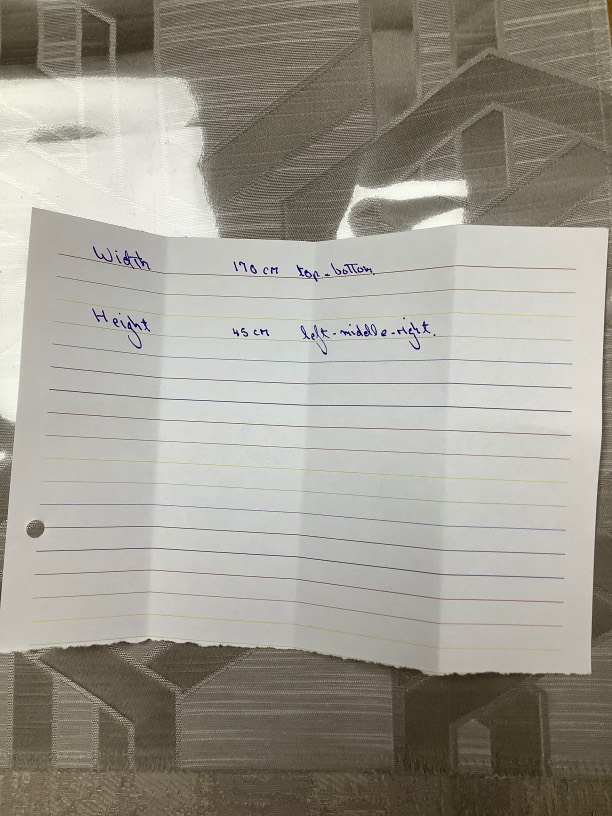 Width 170 cm top-bottom
Height 45 cm left-middle-right.